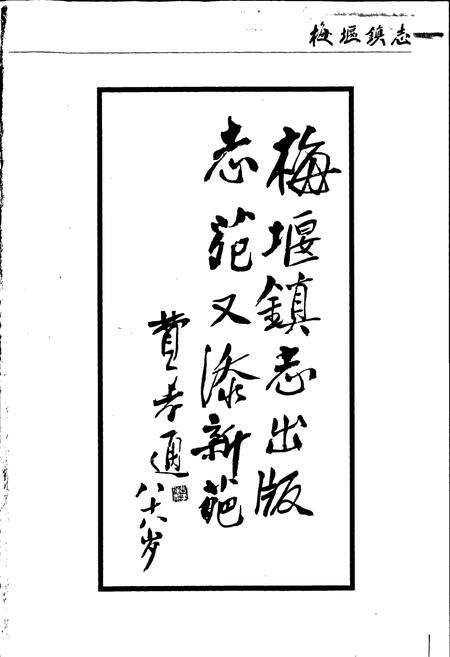 梅堰鎮志
梅堰鎮志出版
志苑又添新葩
費孝通
八十八岁